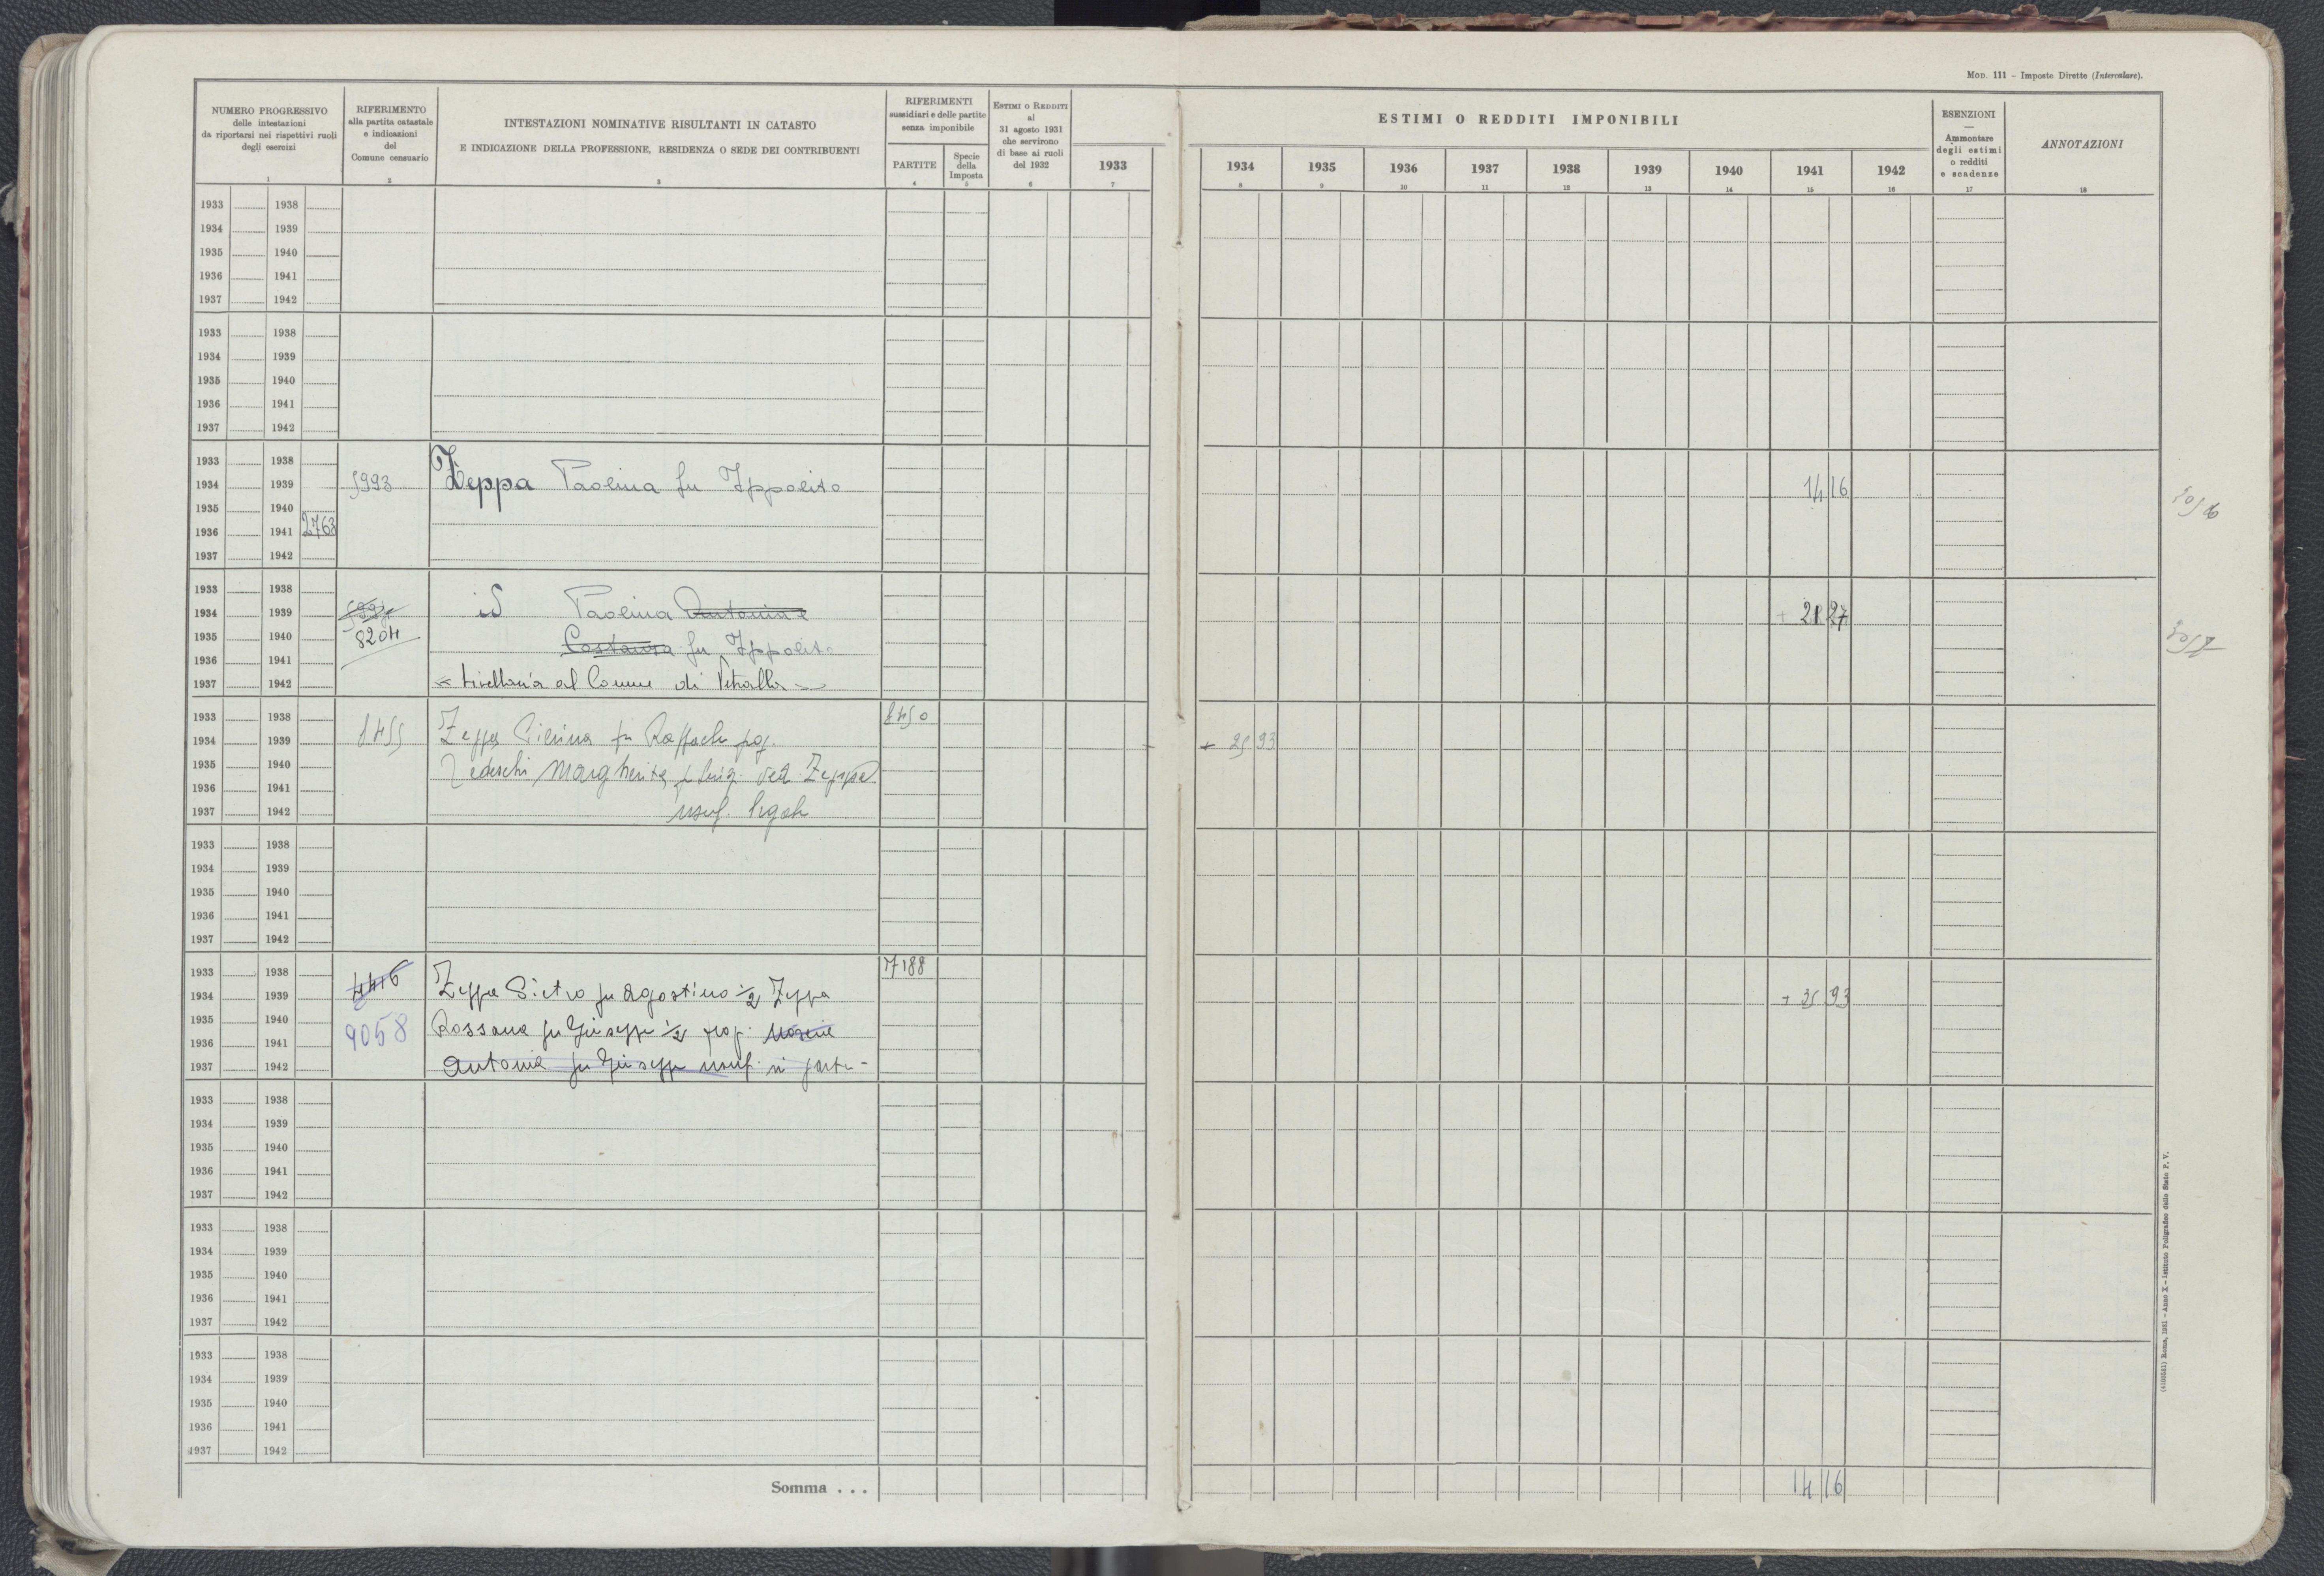 MOD. 111 – Imposte Dirette (Intercalare).
NUMERO PROGRESSIVO
delle intestazioni
da riportarsi nei rispettivi ruoli
degli esercizi
RIFERIMENTO
alla partita catastale
e indicazioni
del
Comune censuario
INTESTAZIONI NOMINATIVE RISULTANTI IN CATASTO
E INDICAZIONE DELLA PROFESSIONE, RESIDENZA O SEDE DEI CONTRIBUENTI
RIFERIMENTI
sussidiari e delle partite
senza imponibile
PARTITE
Specie
della
Imposta
ESTIMI O REDDITI
al
31 agosto 1931
che servirono
di base ai ruoli
del 1932
1933
ESTIMI O REDDITI IMPONIBILI
1934 1935 1936 1937 1938 1939 1940 1941 1942
ESENZIONI
—
Ammontare
degli estimi
o redditi
e scadenze
ANNOTAZIONI
1 2 3 4 5 6 7 8 9 10 11 12 13 14 15 16 17 18
1933 1938
1934 1939
1935 1940
1936 1941
1937 1942
1933 1938
1934 1939
1935 1940
1936 1941
1937 1942
1933 1938
1934 1939 5993 Zeppa Paolina fu Ippolito 14 16
1935 1940
1936 1941 2763
1937 1942
1933 1938
1934 1939 id Paolina Antonia e + 21 27
1935 1940 8204 Costanza fu Ippolito
1936 1941
1937 1942 livellaria al Comune di Vetralla
1933 1938 8450
1934 1939 8455 Zeppa Pierina fu Raffaele prop. + 25 93
1935 1940 Tedeschi Margherita fu Luig. ved. Zeppa
1936 1941
1937 1942 usuf. legale
1933 1938
1934 1939
1935 1940
1936 1941
1937 1942
1933 1938 7188
1934 1939 4416 Zeppa Pietro fu Agostino 1/2 Zeppa + 35 93
1935 1940 Rossana fu Giuseppe 1/2 prop.
1936 1941 9058
1937 1942 Antonia fu Giuseppe usuf. in parte -
1933 1938
1934 1939
1935 1940
1936 1941
1937 1942
1933 1938
1934 1939
1935 1940
1936 1941
1937 1942
1933 1938
1934 1939
1935 1940
1936 1941
1937 1942
Somma . . . 14 16
(4100351) Roma, 1931 – Anno X – Istituto Poligrafico dello Stato P. V.